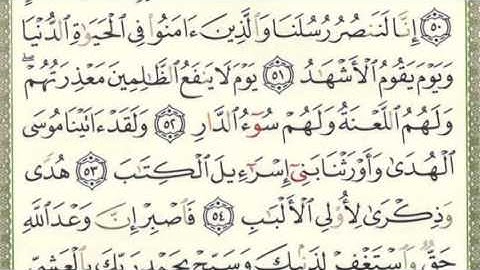 ٥٠ إِنَّا لَنَنصُرُ رُسُلَنَا وَٱلَّذِينَ ءَامَنُوا۟ فِى ٱلْحَيَوٰةِ ٱلدُّنْيَا
وَيَوْمَ يَقُومُ ٱلْأَشْهَـٰدُ ٥١ يَوْمَ لَا يَنفَعُ ٱلظَّـٰلِمِينَ مَعْذِرَتُهُمْ ۖ
وَلَهُمُ ٱللَّعْنَةُ وَلَهُمْ سُوٓءُ ٱلدَّارِ ٥٢ وَلَقَدْ ءَاتَيْنَا مُوسَى
ٱلْهُدَىٰ وَأَوْرَثْنَا بَنِىٓ إِسْرَٰٓءِيلَ ٱلْكِتَـٰبَ ٥٣ هُدًى
وَذِكْرَىٰ لِأُو۟لِى ٱلْأَلْبَـٰبِ ٥٤ فَٱصْبِرْ إِنَّ وَعْدَ ٱللَّهِ
حَقٌّ وَٱسْتَغْفِرْ لِذَنۢبِكَ وَسَبِّحْ بِحَمْدِ رَبِّكَ بِٱلْعَشِىِّ